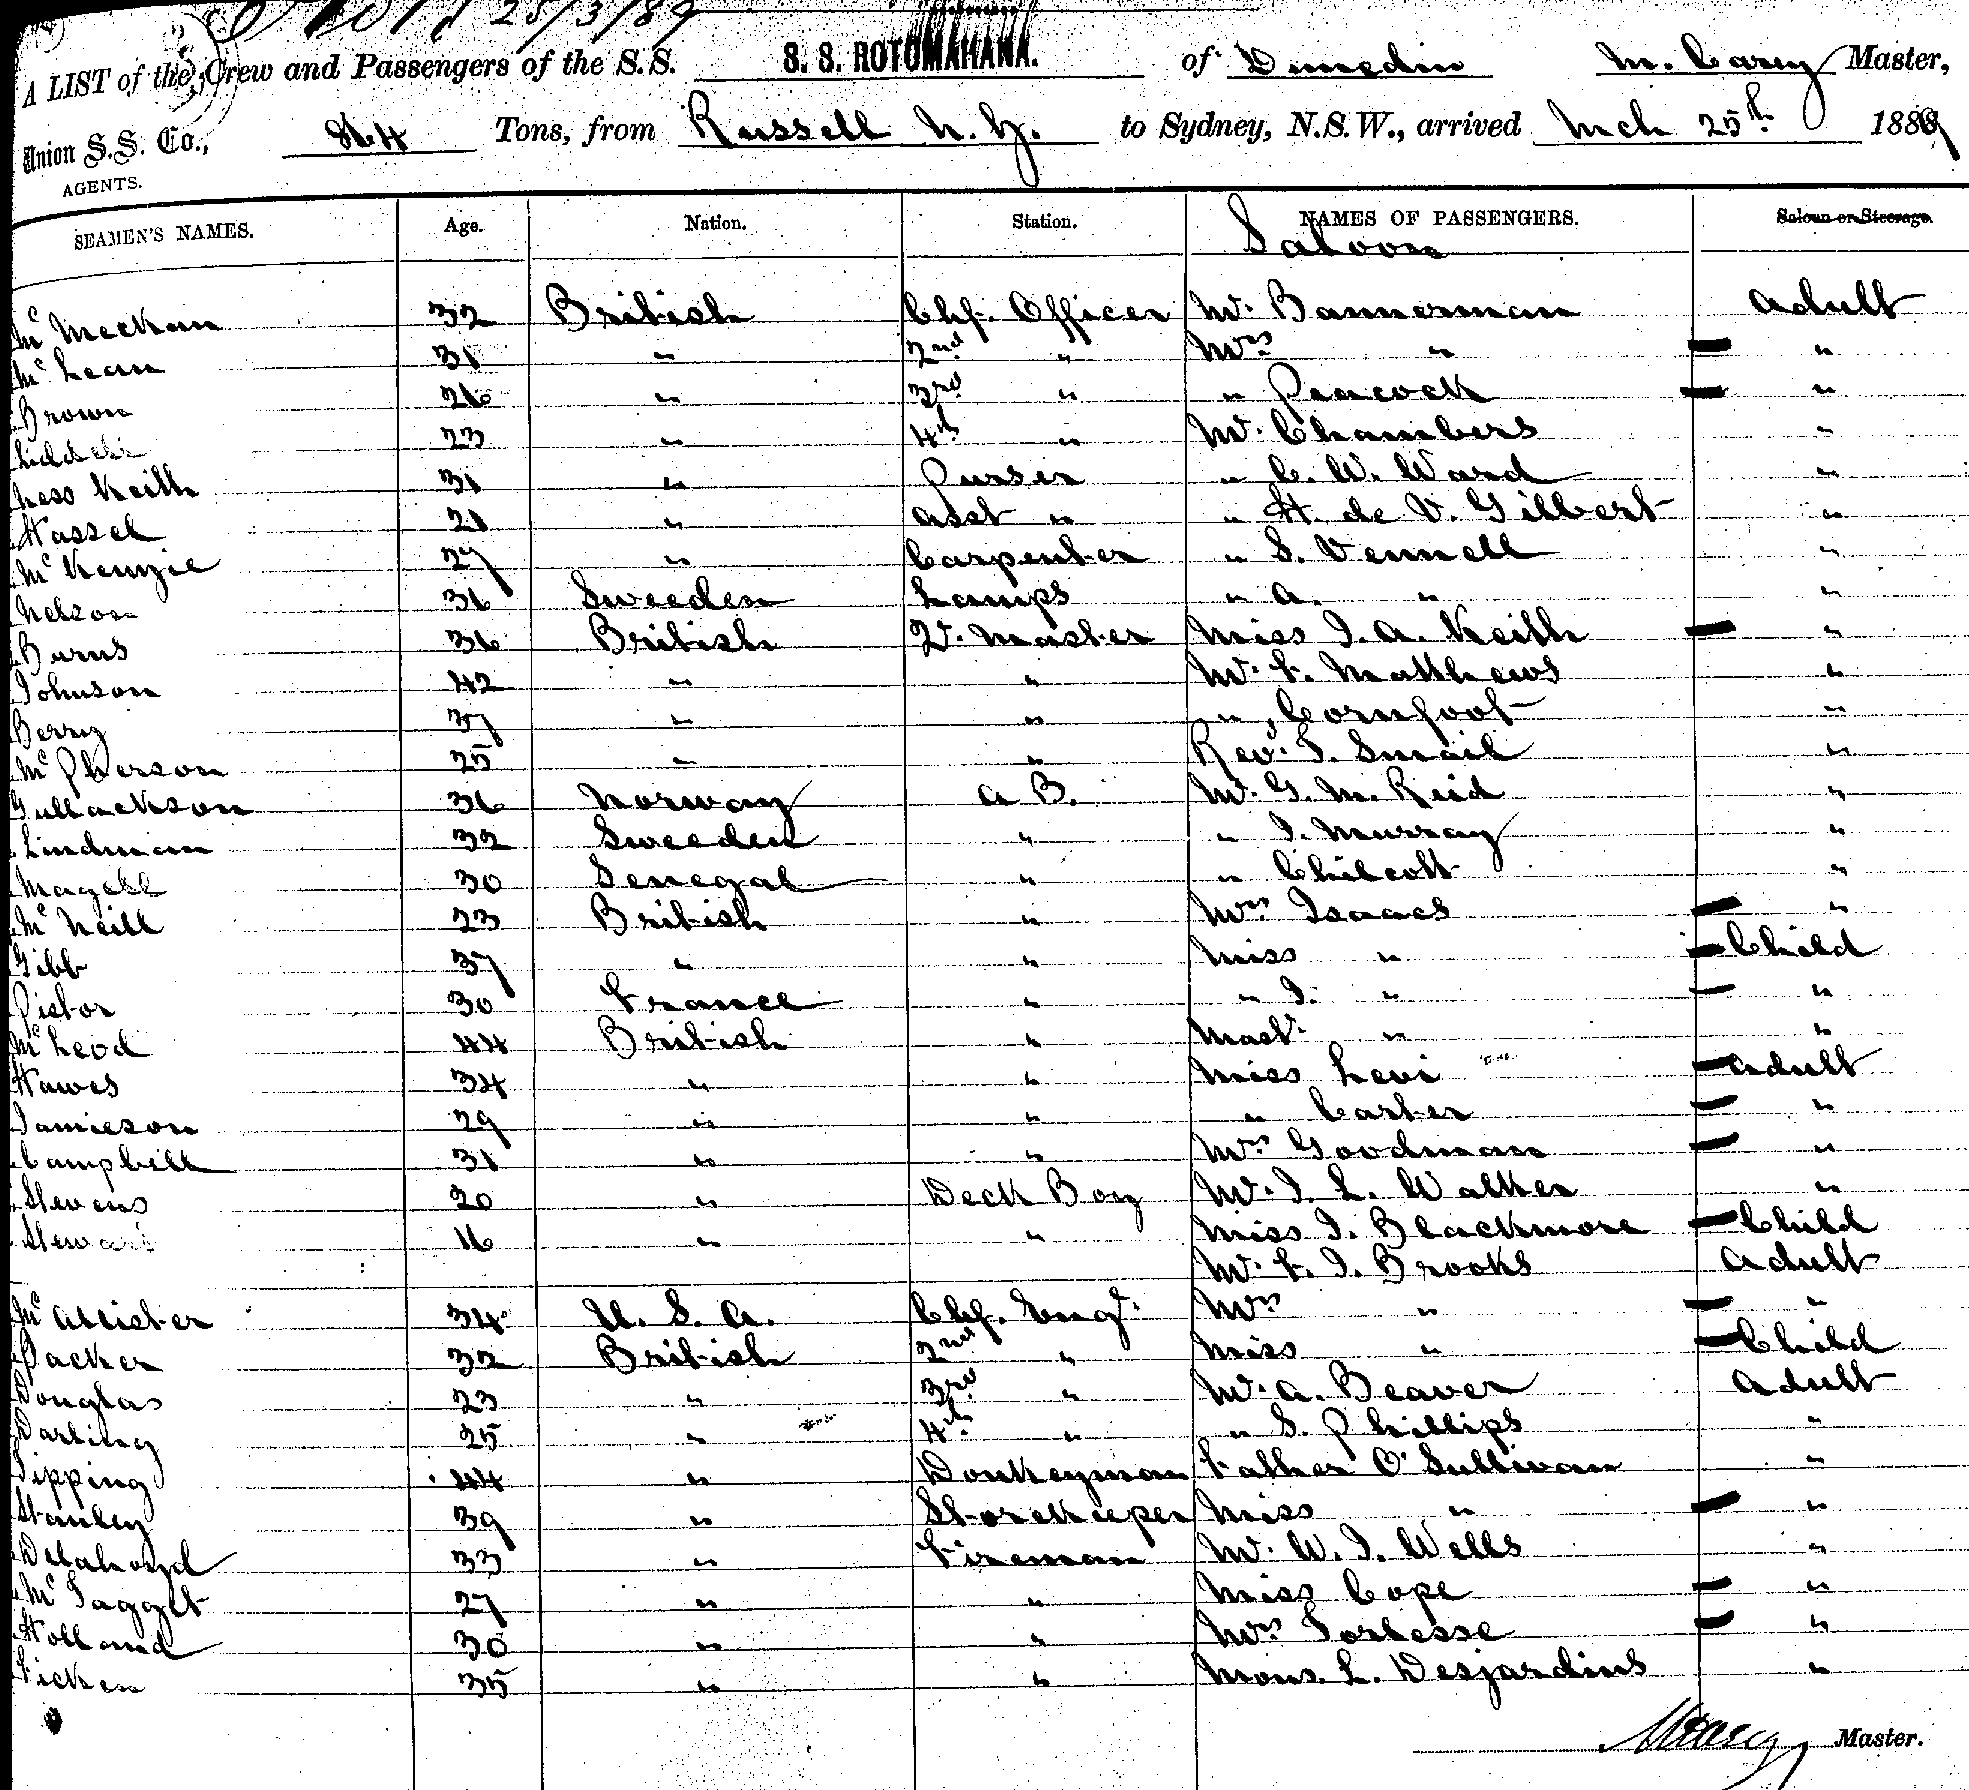 25/3/89
A LIST of the Crew and Passengers of the S.S. S. S. ROTOMAHANA. of Dunedin M. Carey Master,
Union S.S. Co., 864 Tons, from Russell N. Z. to Sydney, N.S.W., arrived Mch 25th 1889
AGENTS.
SEAMEN'S NAMES. Age. Nation. Station. NAMES OF PASSENGERS. Saloon or Steerage.
Saloon
McMeckan 32 British Chf. Officer Mr. Bannerman Adult
McLean 31 " 2nd " Mrs " "
Brown 26 " 3rd " " Peacock "
23 " 4th " Mr. Chambers "
Ness Keith 31 " Purser " C. W. Ward "
Hassel 21 " Asst " " H. de V. Gilbert "
McKenzie 27 " Carpenter " S. Vennell "
Nelson 36 Sweeden Lamps " A. " "
Burns 36 British Q. Master Miss I. A. Keith "
Johnson 42 " " Mr. F. Matthews "
Berry 37 " " " Cornfoot "
McPherson 25 " " Rev. T. Smail "
Gullackson 36 Norway A B. Mr. G. M. Reid "
Lindman 32 Sweeden " " J. Murray "
Magell 30 Senegal " " Chilcott "
McNeill 23 British " Mrs Isaacs "
Gibb 37 " " Miss " Child
Pistor 30 France " " I. " "
McLeod 44 British " Mast. " "
Hawes 34 " " Miss Levi Adult
Jamieson 29 " " " Carter "
Campbell 31 " " Mrs Goodman "
Stevens 20 " Deck Boy Mr. J. L. Walker "
Stewart 16 " " Miss I. Blackmore Child
Mr. F. J. Brooks Adult
McAllister 34 U. S. A. Chf. Engr. Mrs " "
Packer 32 British 2nd " Miss " Child
Douglas 23 " 3rd " Mr. A. Beaver Adult
Darling 25 " 4th " " S. Phillips "
Tipping 44 " Donkeyman Father O'Sullivan "
Stanley 39 " Storekeeper Miss " "
Delahoyd 33 " Fireman Mr. W. J. Wells "
McTagget 27 " " Miss Cope "
Holland 30 " " Mrs Fortesse "
Ficken 35 " " Mons. L. Desjardins "
MCarey Master.